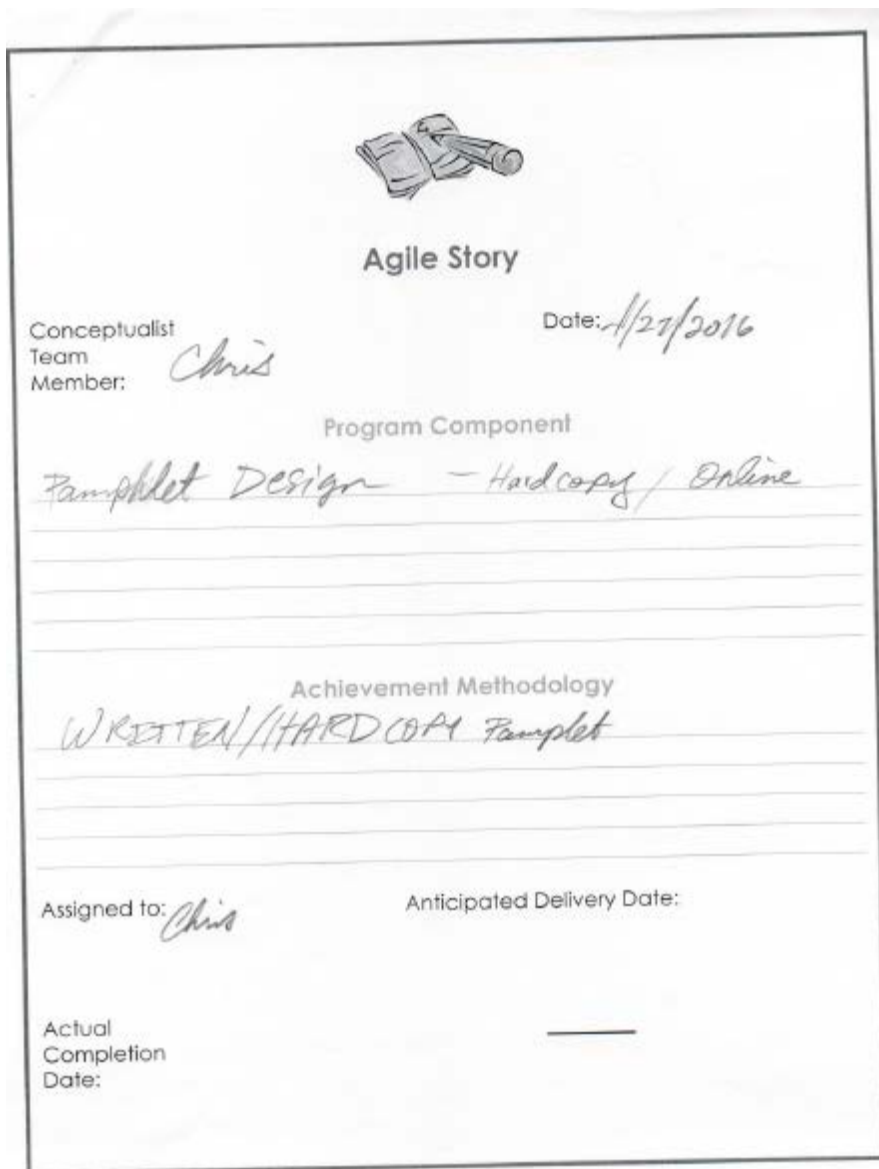 Agile Story
Conceptualist
Team
Member: Chris
Date: 1/27/2016
Program Component
Pamphlet Design - Hardcopy / Online
Achievement Methodology
WRITTEN/HARDCOPY Pamplet
Assigned to: Chris
Anticipated Delivery Date:
Actual
Completion
Date: